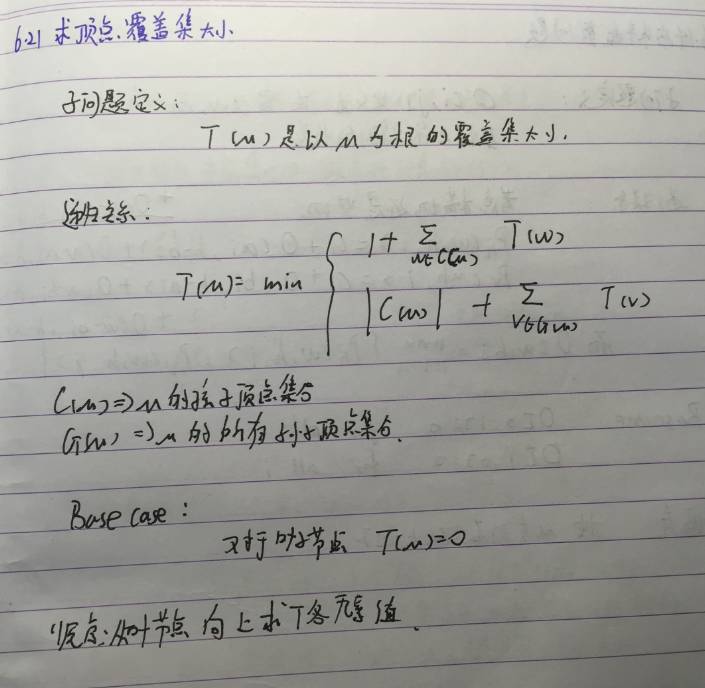 6.21 求顶点覆盖集大小.
子问题定义:
T(u) 是以 u 为根的覆盖集大小.
递归关系:
T(u) = min { 1 + Σ_{w∈C(u)} T(w)
|C(u)| + Σ_{v∈G(u)} T(v)
C(u) => u 的孩子顶点集合
G(u) => u 的所有孙子顶点集合.
Base case:
对于叶子节点 T(u)=0
顺序: 从叶节点向上求T各元素值.